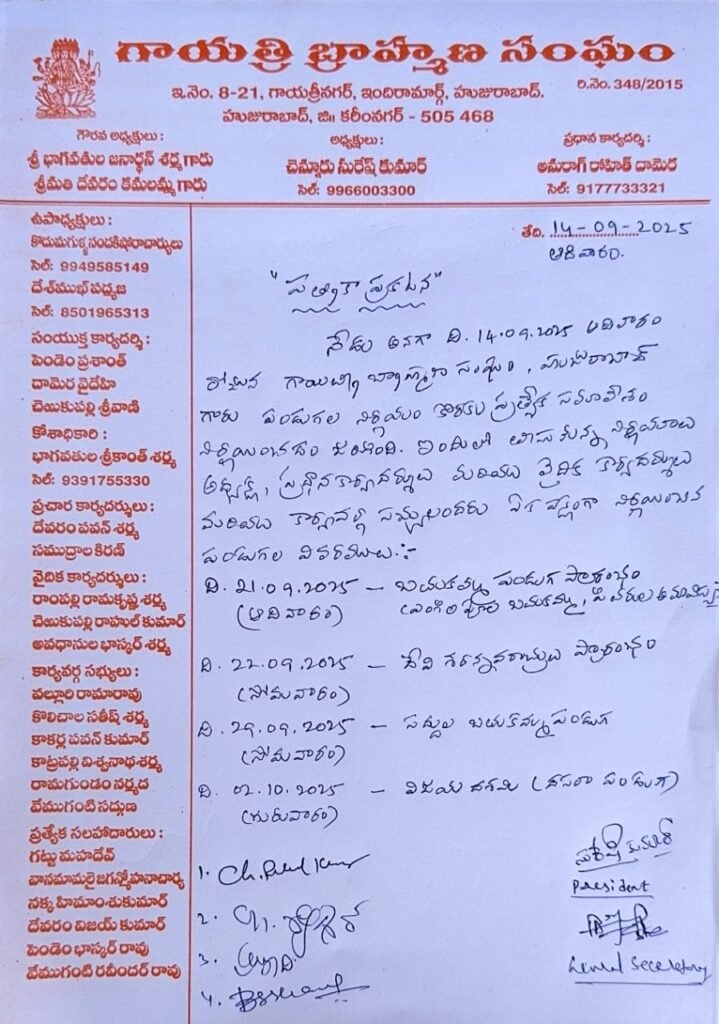 గాయత్రి బ్రాహ్మణ సంఘం
ఇ.నెం. 8-21, గాయత్రీనగర్, ఇందిరామార్గ్, హుజురాబాద్.
రి.నెం. 348/2015
హుజురాబాద్, జి॥ కరీంనగర్ - 505 468
గౌరవ అధ్యక్షులు :
శ్రీ భాగవతుల జనార్థన్ శర్మ గారు
శ్రీమతి దేవరం కమలమ్మ గారు
అధ్యక్షులు :
చెన్నూరు సురేష్ కుమార్
సెల్: 9966003300
ప్రధాన కార్యదర్శి :
అనురాగ్ రోహిత్ దామెర
సెల్: 9177733321
ఉపాధ్యక్షులు :
కొడుమగుళ్ళ నందకిషోరాచార్యులు
సెల్: 9949585149
దేశ్‌ముఖ్ పద్మజ
సెల్: 8501965313
సంయుక్త కార్యదర్శి :
పెండెం ప్రశాంత్
దామెర వైదేహి
చెఱుకుపల్లి శ్రీవాణి
కోశాధికారి :
భాగవతుల శ్రీకాంత్ శర్మ
సెల్: 9391755330
ప్రచార కార్యదర్శులు :
దేవరం పవన్ శర్మ
సముద్రాల కిరణ్
వైదిక కార్యదర్శులు :
రాంపల్లి రామకృష్ణ శర్మ
చెఱుకుపల్లి రాహుల్ కుమార్
అవధానుల భాస్కర్ శర్మ
కార్యవర్గ సభ్యులు :
వల్లూరి రామారావు
కొలిచాల సతీష్ శర్మ
కాకర్ల పవన్ కుమార్
కాట్రపల్లి విశ్వనాథశర్మ
రామగుండం నర్మద
వేముగంటి సద్గుణ
ప్రత్యేక సలహాదారులు :
గట్టు మహదేవ్
వానమామలై జగన్మోహనాచార్య
నక్క హిమాంశుకుమార్
దేవరం విజయ్ కుమార్
పెండెం భాస్కర్ రావు
వేముగంటి రవీందర్ రావు
తేది. 14-09-2025
ఆదివారం.
"పత్రికా ప్రకటన"
నేడు అనగా ది. 14.09.2025 ఆదివారం
రోజున గాయత్రి బ్రాహ్మణ సంఘం, హుజురాబాద్
గారు పండుగల నిర్ణయం కొరకు ప్రత్యేక సమావేశం
నిర్ణయించడం జరిగింది. ఇందులో తీసుకున్న నిర్ణయాలు
అధ్యక్ష, ప్రధానకార్యదర్శులు మరియు వైదిక కార్యదర్శులు
మరియు కార్యవర్గ సభ్యులందరు ఏక పక్షంగా నిర్ణయించిన
పండుగల వివరములు:-
ది. 21.09.2025 - బతుకమ్మ పండుగ ప్రారంభం
(ఆదివారం) (ఎంగిలి పూల బతుకమ్మ, పితరుల అమావాస్య)
ది. 22.09.2025 - దేవి శరన్నవరాత్రులు ప్రారంభం
(సోమవారం)
ది. 29.09.2025 - సద్దుల బతుకమ్మ పండుగ
(సోమవారం)
ది. 02.10.2025 - విజయ దశమి (దసరా పండుగ)
(గురువారం)
1. Ch. Rahul Kumar
2. Ch.
3.
4.
సురేష్ కుమార్
President
General Secretary